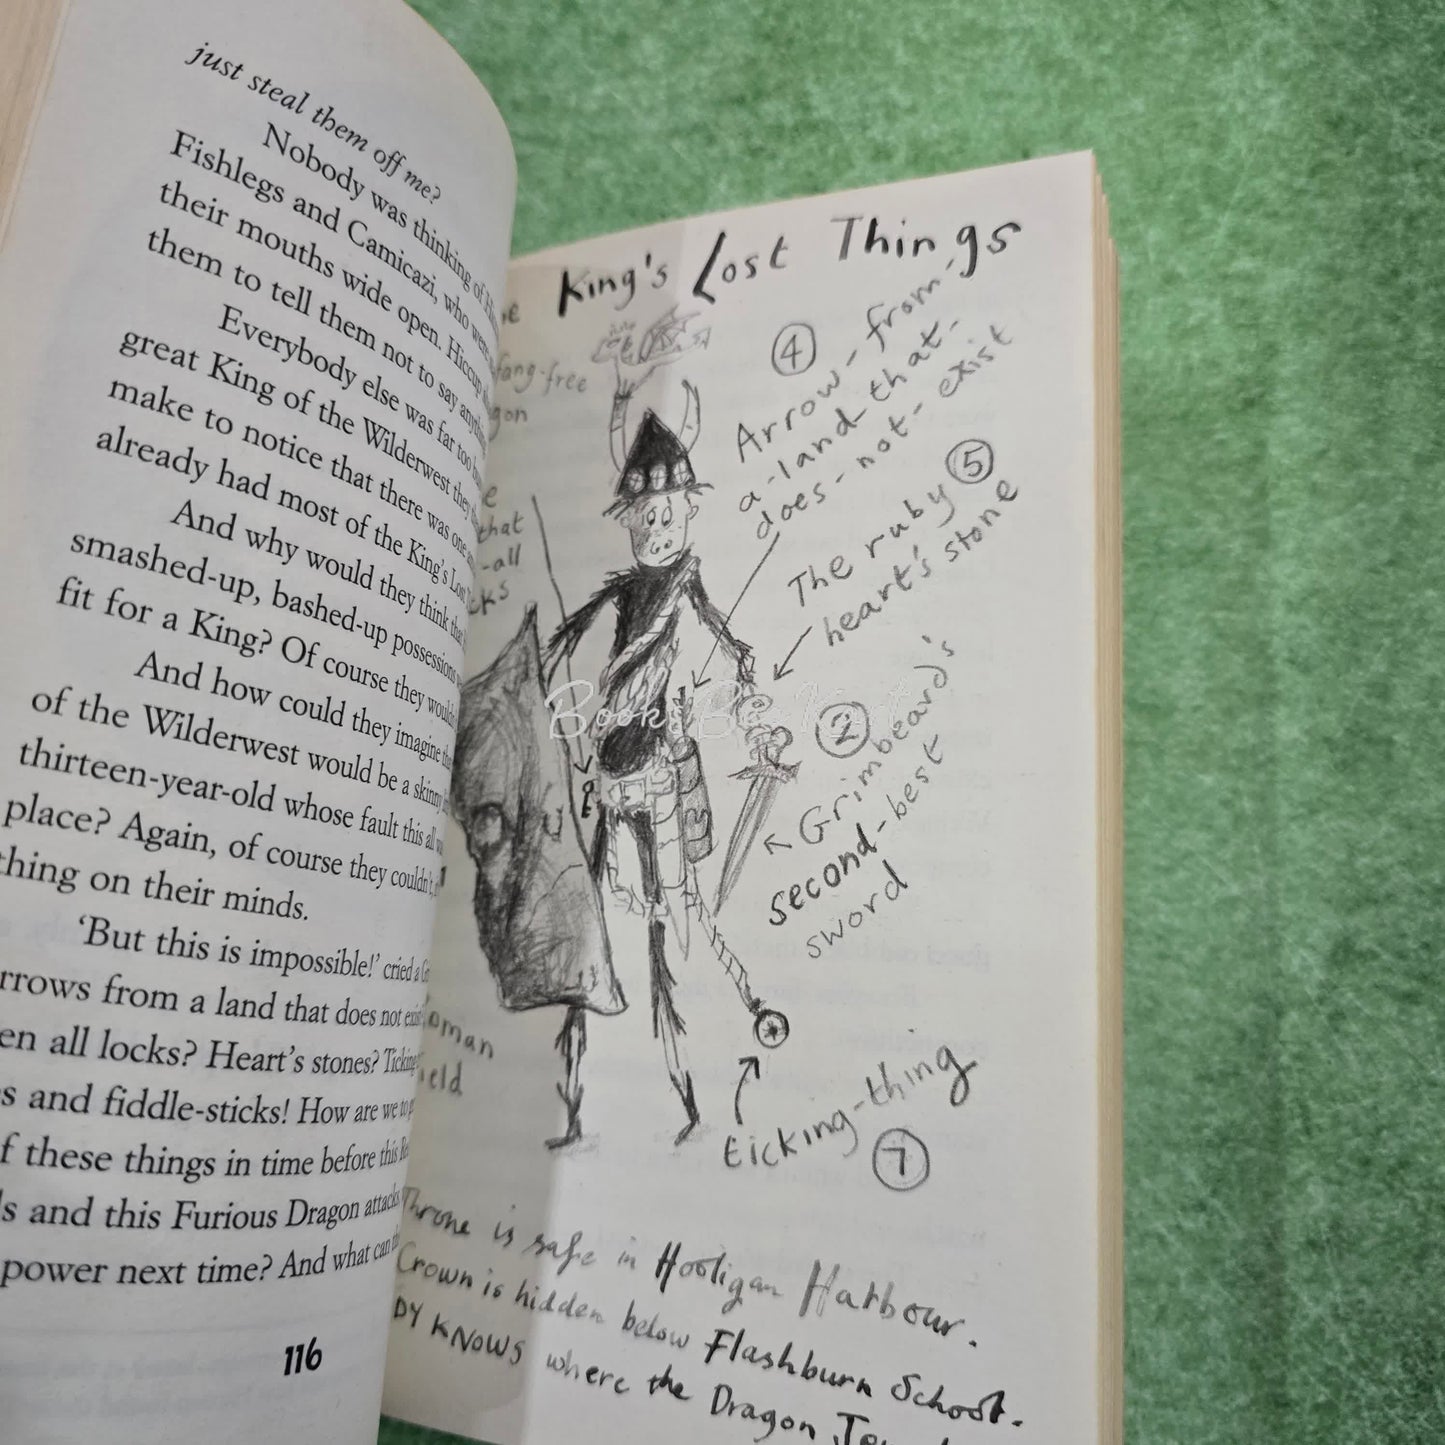 just steal them off me?
Nobody was thinking of
Fishlegs and Camicazi, who were
their mouths wide open. Hiccup
them to tell them not to say anything
Everybody else was far too
great King of the Wilderwest they
make to notice that there was one
already had most of the King's Lost
And why would they think that
smashed-up, bashed-up possessions
fit for a King? Of course they
And how could they imagine
of the Wilderwest would be a skinny
thirteen-year-old whose fault this all
place? Again, of course they couldn't,
thing on their minds.
'But this is impossible!' cried a
from a land that does not exist
all locks? Heart's stones? Ticking
and fiddle-sticks! How are we to
these things in time before this
and this Furious Dragon attacks
power next time? And what can
116
King's Lost Things
fang-free
that
-all
4
Arrow-from-
a-land-that-
does-not-exist
The ruby 5
heart's stone
2
Grimbeard's
second-best
sword
ticking-thing
7
Throne is safe in Hooligan Harbour.
Crown is hidden below Flashburn School.
KNOWS where the Dragon